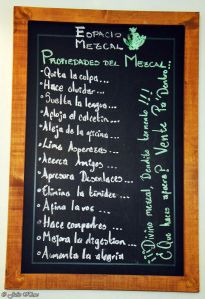 Espacio
Mezcal
Propiedades del Mezcal
·Quita la culpa...
·Hace olvidar...
·Suelta la lengua...
·Afloja el calcetín...
·Aleja de la oficina...
·Lima Asperezas...
·Acerca Amigos...
·Apresura Desenlaces...
·Elimina la timidez...
·Afina la voz...
·Hace compadres...
·Mejora la digestion...
·Aumenta la alegria
¡¡¡Divino mezcal, Bendito tormento!!!
¿Que haces afuera? Vente Pa' Dentro...